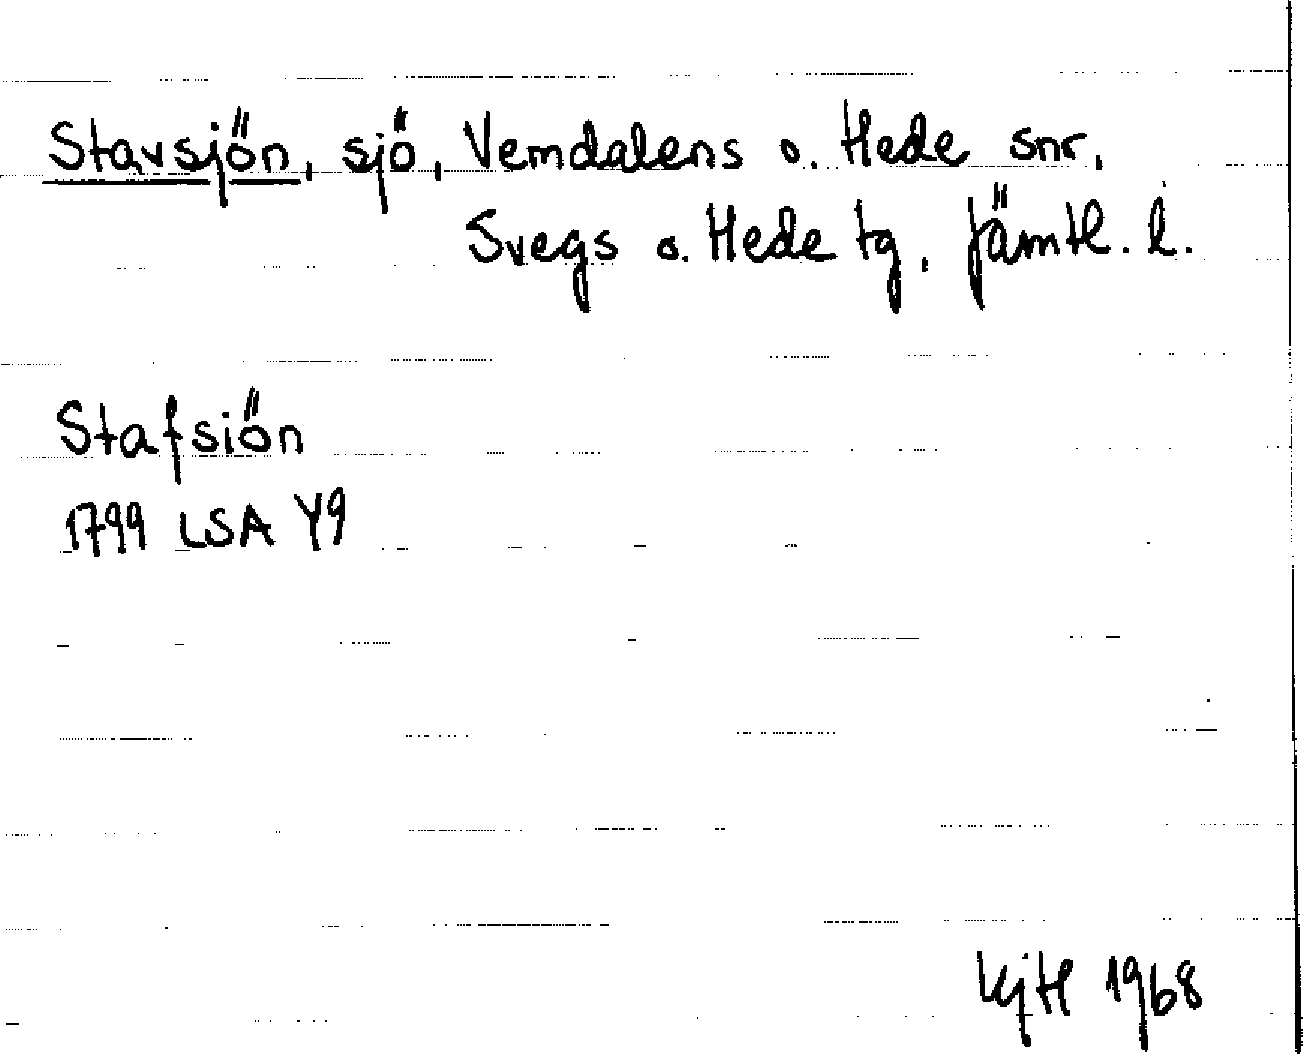 Stavsjön, sjö, Vemdalens o. Hede snr,
Svegs o. Hede tg, Jämtl. l.
Stafsiön
1799 LSA Y9
1968